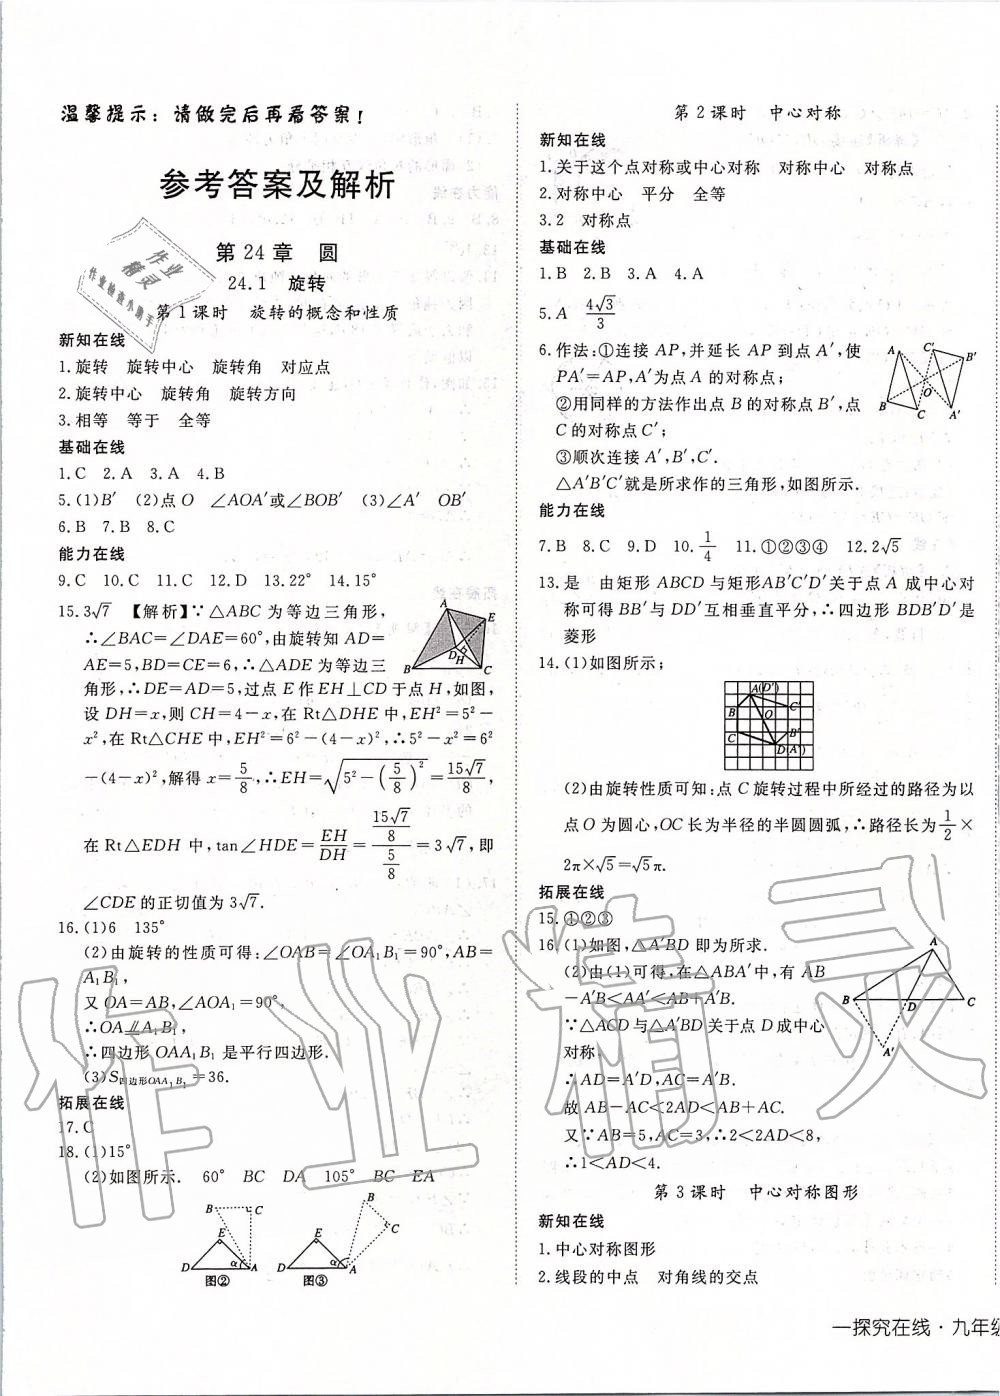 温馨提示：请做完后再看答案！
参考答案及解析
第24章 圆
24.1 旋转
第1课时 旋转的概念和性质
新知在线
1.旋转 旋转中心 旋转角 对应点
2.旋转中心 旋转角 旋转方向
3.相等 等于 全等
基础在线
1.C 2.A 3.A 4.B
5.(1)B′ (2)点O ∠AOA′或∠BOB′ (3)∠A′ OB′
6.B 7.B 8.C
能力在线
9.C 10.C 11.C 12.D 13.22° 14.15°
15.3√7 【解析】∵△ABC为等边三角形，
∴∠BAC=∠DAE=60°,由旋转知AD=
AE=5,BD=CE=6,∴△ADE为等边三
角形,∴DE=AD=5,过点E作EH⊥CD于点H,如图,
设DH=x,则CH=4-x,在Rt△DHE中,EH²=5²-
x²,在Rt△CHE中,EH²=6²-(4-x)²,∴5²-x²=6²
-(4-x)²,解得x=5/8,∴EH=√(5²-(5/8)²)=15√7/8,
在Rt△EDH中,tan∠HDE=EH/DH=(15√7/8)/(5/8)=3√7,即
∠CDE的正切值为3√7.
16.(1)6 135°
(2)由旋转的性质可得:∠OAB=∠OA₁B₁=90°,AB=
A₁B₁,
又OA=AB,∠AOA₁=90°,
∴OA∥A₁B₁,
∴四边形OAA₁B₁是平行四边形.
(3)S四边形OAA₁B₁=36.
拓展在线
17.C
18.(1)15°
(2)如图所示. 60° BC DA 105° BC EA
B C E D A α 图②
B C E D A α 图③
A E D H B C
第2课时 中心对称
新知在线
1.关于这个点对称或中心对称 对称中心 对称点
2.对称中心 平分 全等
3.2 对称点
基础在线
1.B 2.B 3.A 4.D
5.A 4√3/3
6.作法:①连接AP,并延长AP到点A′,使
PA′=AP,A′为点A的对称点;
②用同样的方法作出点B的对称点B′,点
C的对称点C′;
③顺次连接A′,B′,C′.
△A′B′C′就是所求作的三角形,如图所示.
A C′ B′ O B C A′
能力在线
7.B 8.C 9.D 10.1/4 11.①②③④ 12.2√5
13.是 由矩形ABCD与矩形AB′C′D′关于点A成中心对
称可得BB′与DD′互相垂直平分,∴四边形BDB′D′是
菱形
14.(1)如图所示;
A(D′) B C′ O C B′ D(A′)
(2)由旋转性质可知:点C旋转过程中所经过的路径为以
点O为圆心,OC长为半径的半圆圆弧,∴路径长为1/2×
2π×√5=√5π.
拓展在线
15.①②③
16.(1)如图,△A′BD即为所求.
(2)由(1)可得,在△ABA′中,有AB
-A′B<AA′<AB+A′B.
∵△ACD与△A′BD关于点D成中心
对称.
∴AD=A′D,AC=A′B.
故AB-AC<2AD<AB+AC.
又∵AB=5,AC=3,∴2<2AD<8,
∴1<AD<4.
A B D C A′
第3课时 中心对称图形
新知在线
1.中心对称图形
2.线段的中点 对角线的交点
一探究在线·九年级
作业精灵
作业
精灵
作业检查小助手